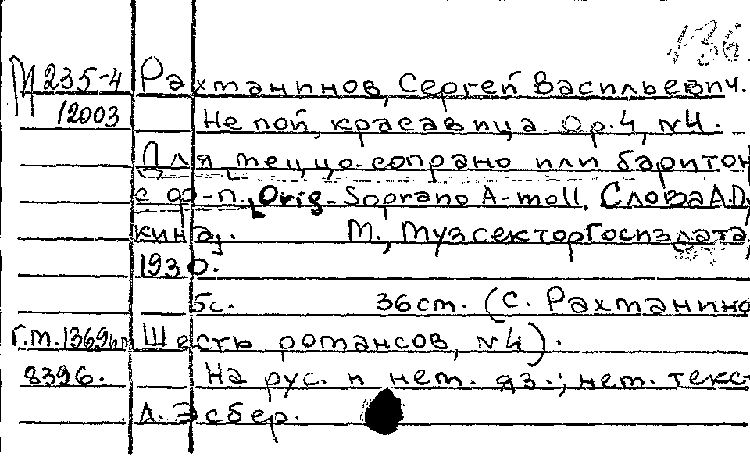 136
М 235-4 Рахманинов, Сергей Васильевич.
12003 Не пой, красавица. Op. 4, №4.
Для меццо-сопрано или баритон
с ф-п., Orig. Soprano A-moll. Слова А.П
кина. М., Музсектор Госиздата,
1930.
5с. 36см. (С. Рахманино
Г.М. 1369 Шесть романсов, №4).
8396. На рус. и нем. яз.; нем. текс
Л. Эсбер.